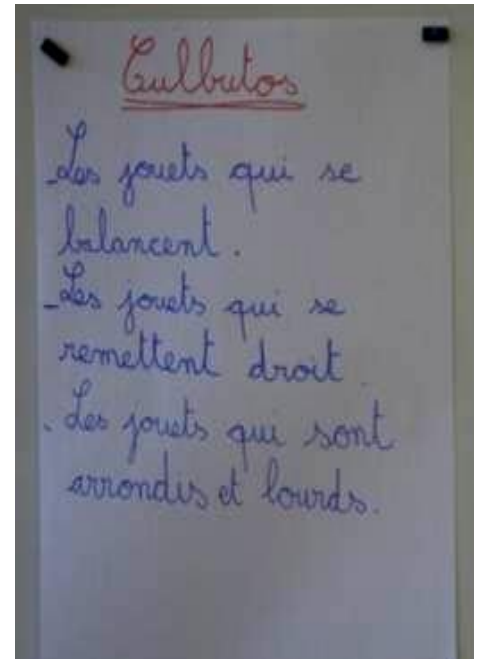 Culbutos
- Les jouets qui se
balancent.
- Les jouets qui se
remettent droit.
- Les jouets qui sont
arrondis et lourds.